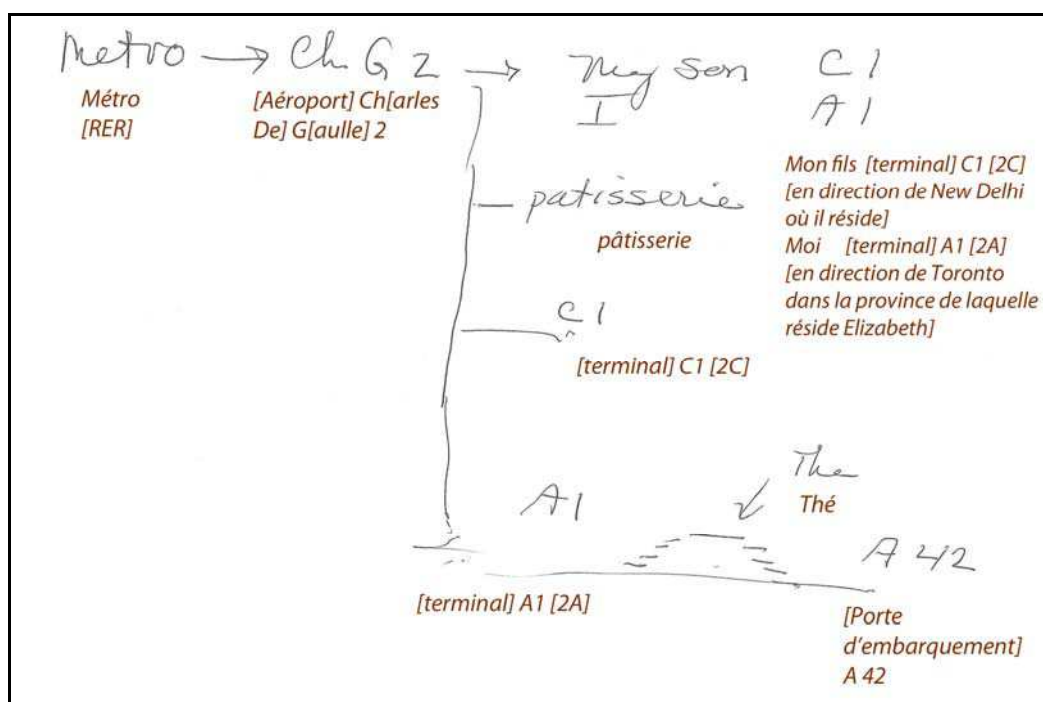 Metro → Ch G 2 → My son C1
I A1
Métro
[RER]
[Aéroport] Ch[arles
De] G[aulle] 2
Mon fils [terminal] C1 [2C]
[en direction de New Delhi
où il réside]
Moi [terminal] A1 [2A]
[en direction de Toronto
dans la province de laquelle
réside Elizabeth]
patisserie
pâtisserie
C1
[terminal] C1 [2C]
The
Thé
A1
A 42
[terminal] A1 [2A]
[Porte
d'embarquement]
A 42